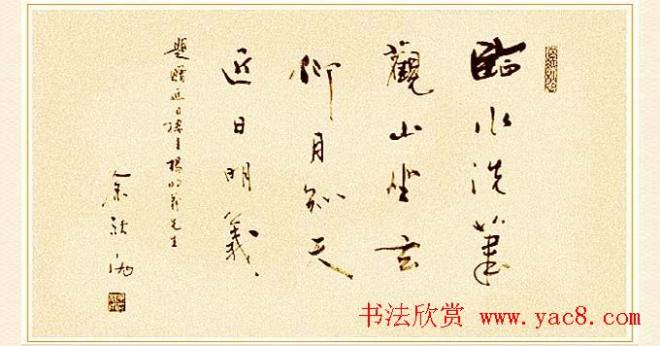 臨水洗筆
觀山玄
仰月知天
近日明義
題贈近日樓主楊明義先生
余秋雨
书法欣赏 www.yac8.com